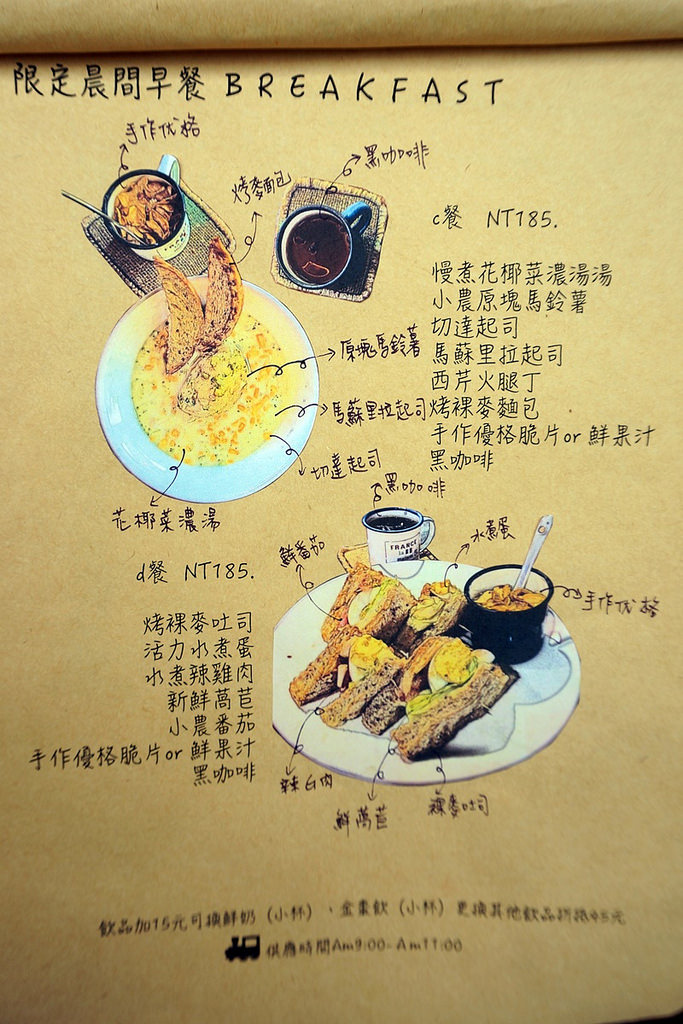 限定晨間早餐 BREAKFAST
手作优格
烤麥面包
黑咖啡
c餐 NT185.
慢煮花椰菜濃湯湯
小農原塊馬鈴薯
切達起司
馬蘇里拉起司
西芹火腿丁
烤裸麥麵包
手作優格脆片or 鮮果汁
黑咖啡
原塊馬鈴薯
馬蘇里拉起司
切達起司
花椰菜濃湯
黑咖啡
鮮番茄
水煮蛋
手作优格
FRANCE
d餐 NT185.
烤裸麥吐司
活力水煮蛋
水煮辣雞肉
新鮮萵苣
小農番茄
手作優格脆片or 鮮果汁
黑咖啡
辣白肉
鮮萵苣
裸麥吐司
飲品加15元可換鮮奶（小杯）、金棗飲（小杯）更換其他飲品折抵45元
供應時間Am9:00-Am11:00